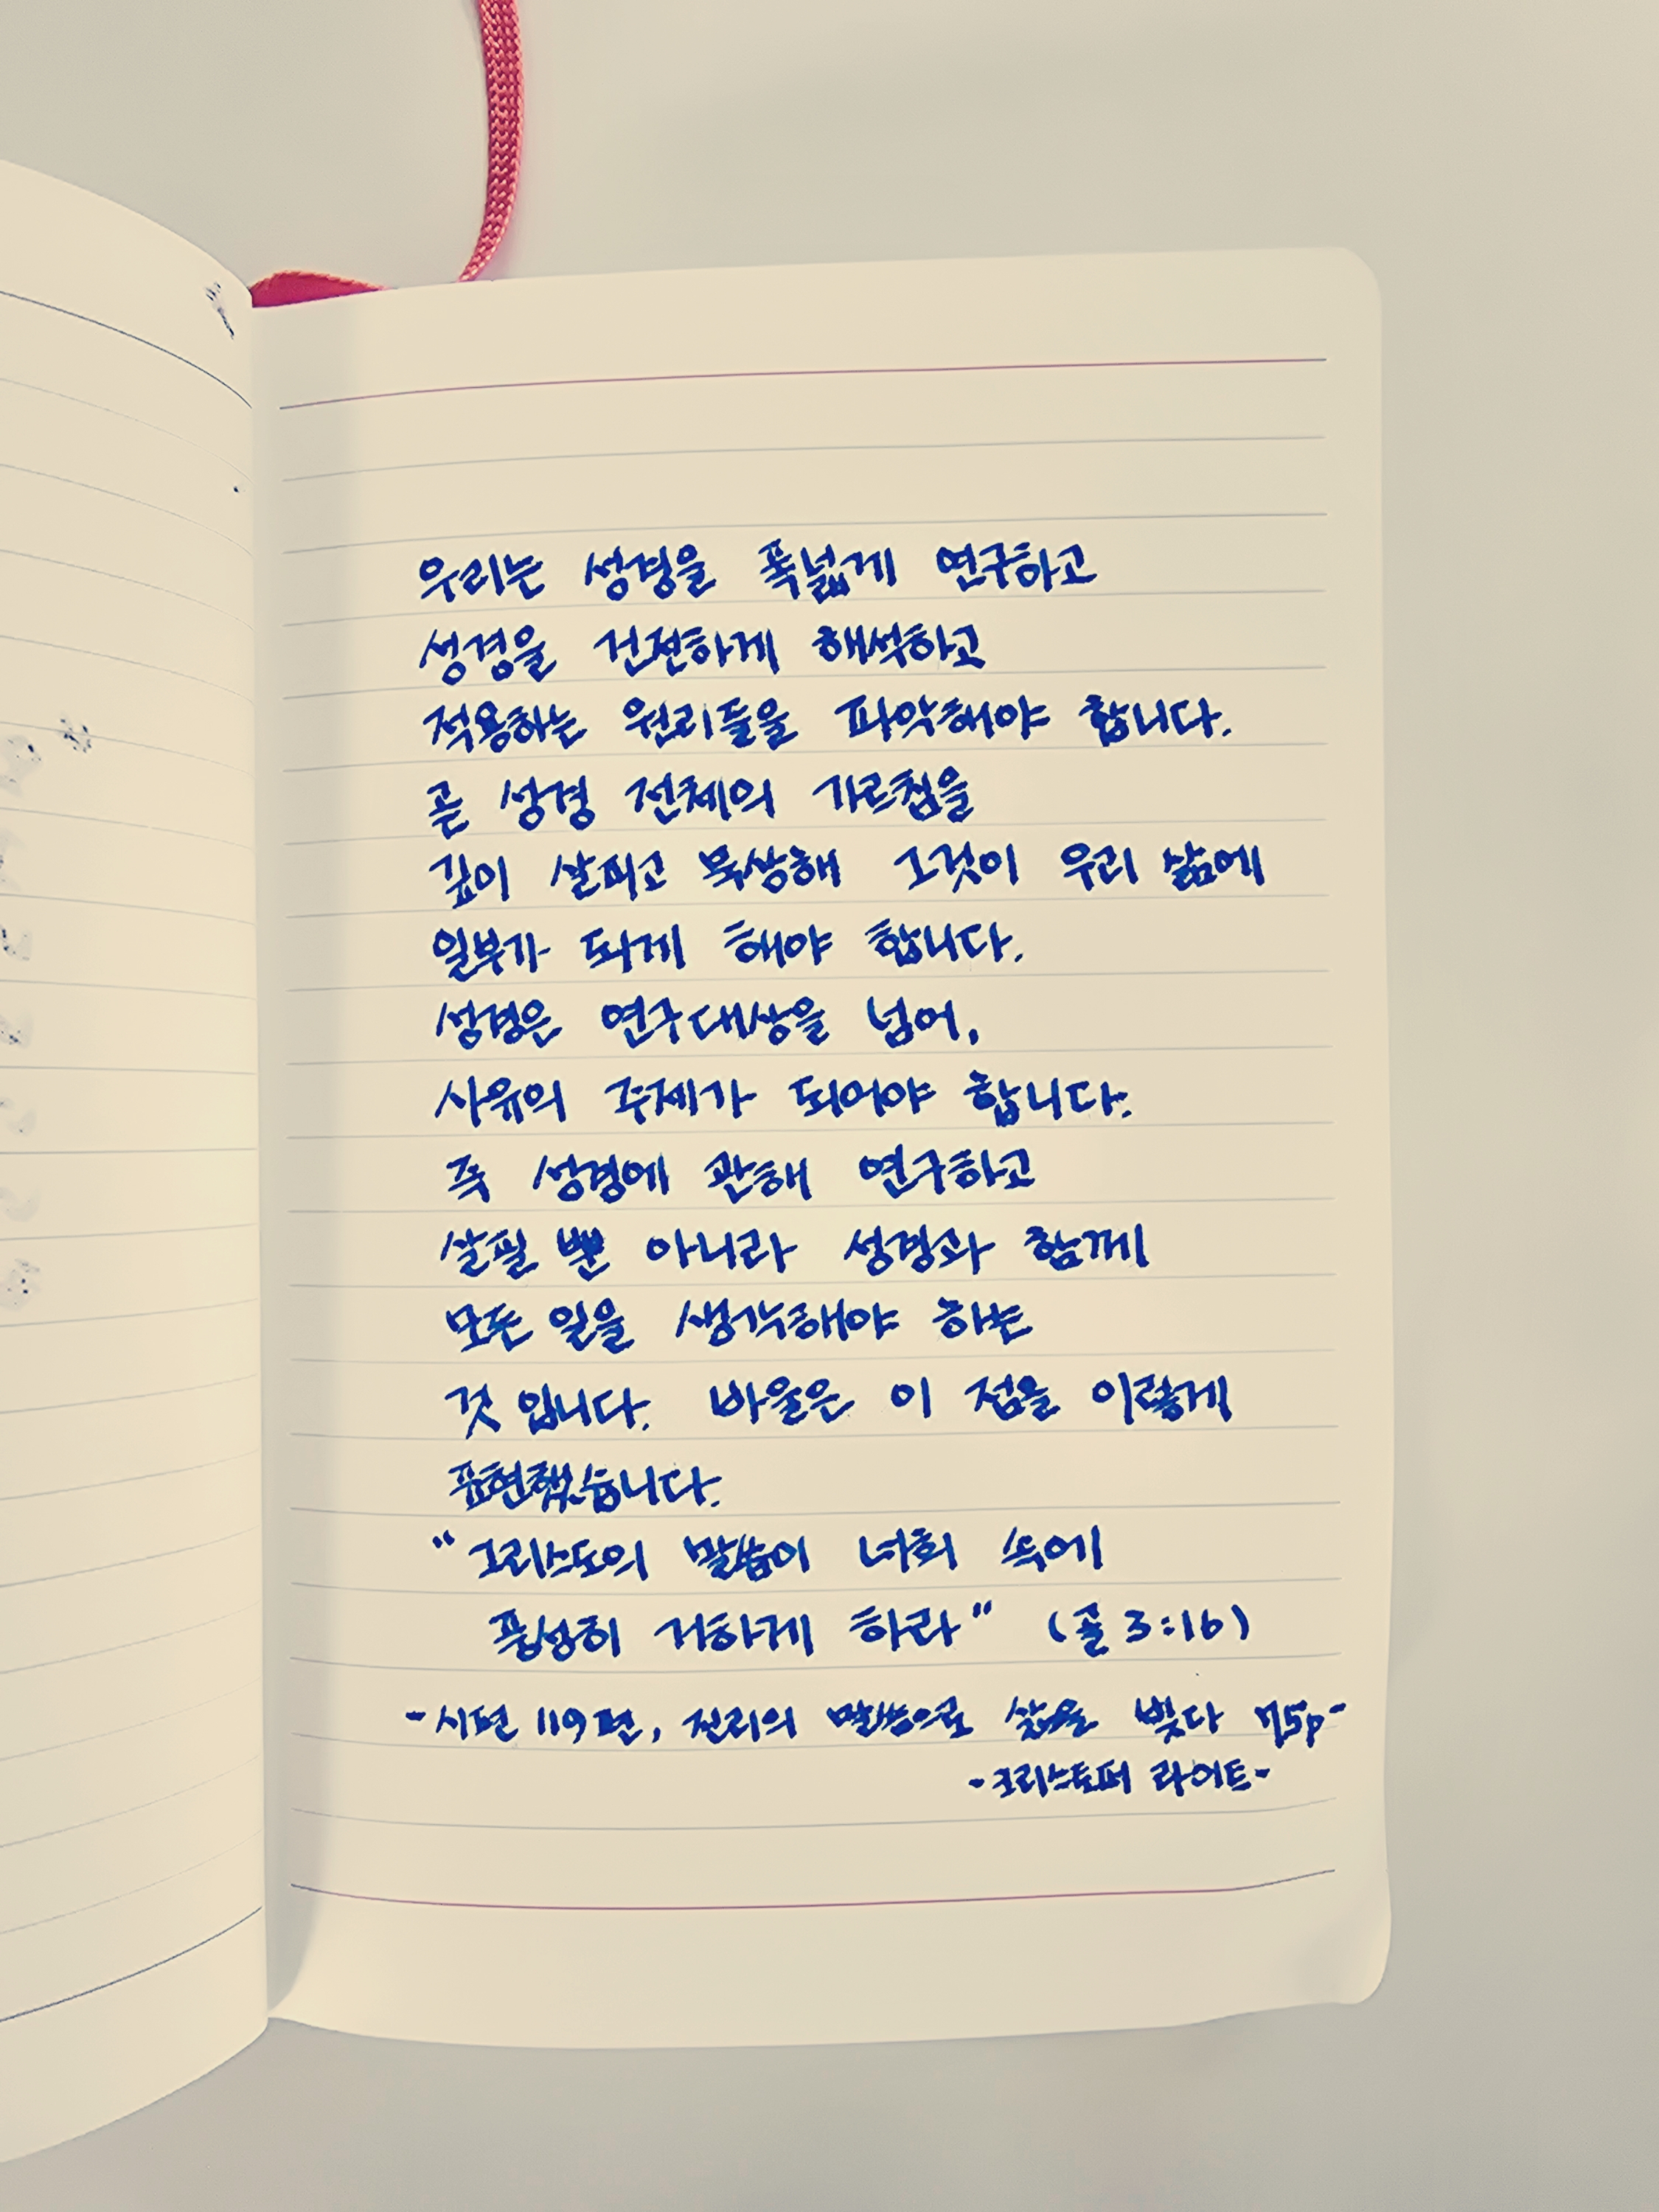 우리는 성경을 폭넓게 연구하고
성경을 건전하게 해석하고
적용하는 원리들을 파악해야 합니다.
곧 성경 전체의 가르침을
깊이 살피고 묵상해 그것이 우리 삶에
일부가 되게 해야 합니다.
성경은 연구대상을 넘어,
사유의 주제가 되어야 합니다.
즉 성경에 관해 연구하고
살필 뿐 아니라 성경과 함께
모든 일을 생각해야 하는
것 입니다. 바울은 이 점을 이렇게
표현했습니다.
"그리스도의 말씀이 너희 속에
풍성히 거하게 하라" (골 3:16)
-시편 119편, 진리의 말씀으로 삶을 빚다 75p-
-크리스토퍼 라이트-